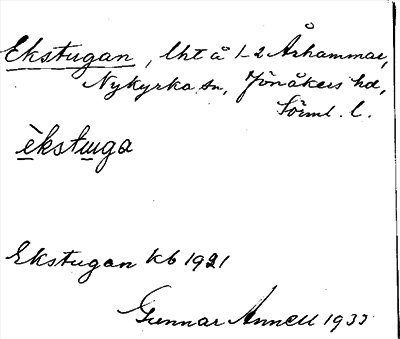 Ekstugan, lht å 1-2 Århammar,
Nykyrka sn, Jönåkers hd,
Sörml. l.
èkstuga
Ekstugan kb 1921
Gunnar Annell 1933